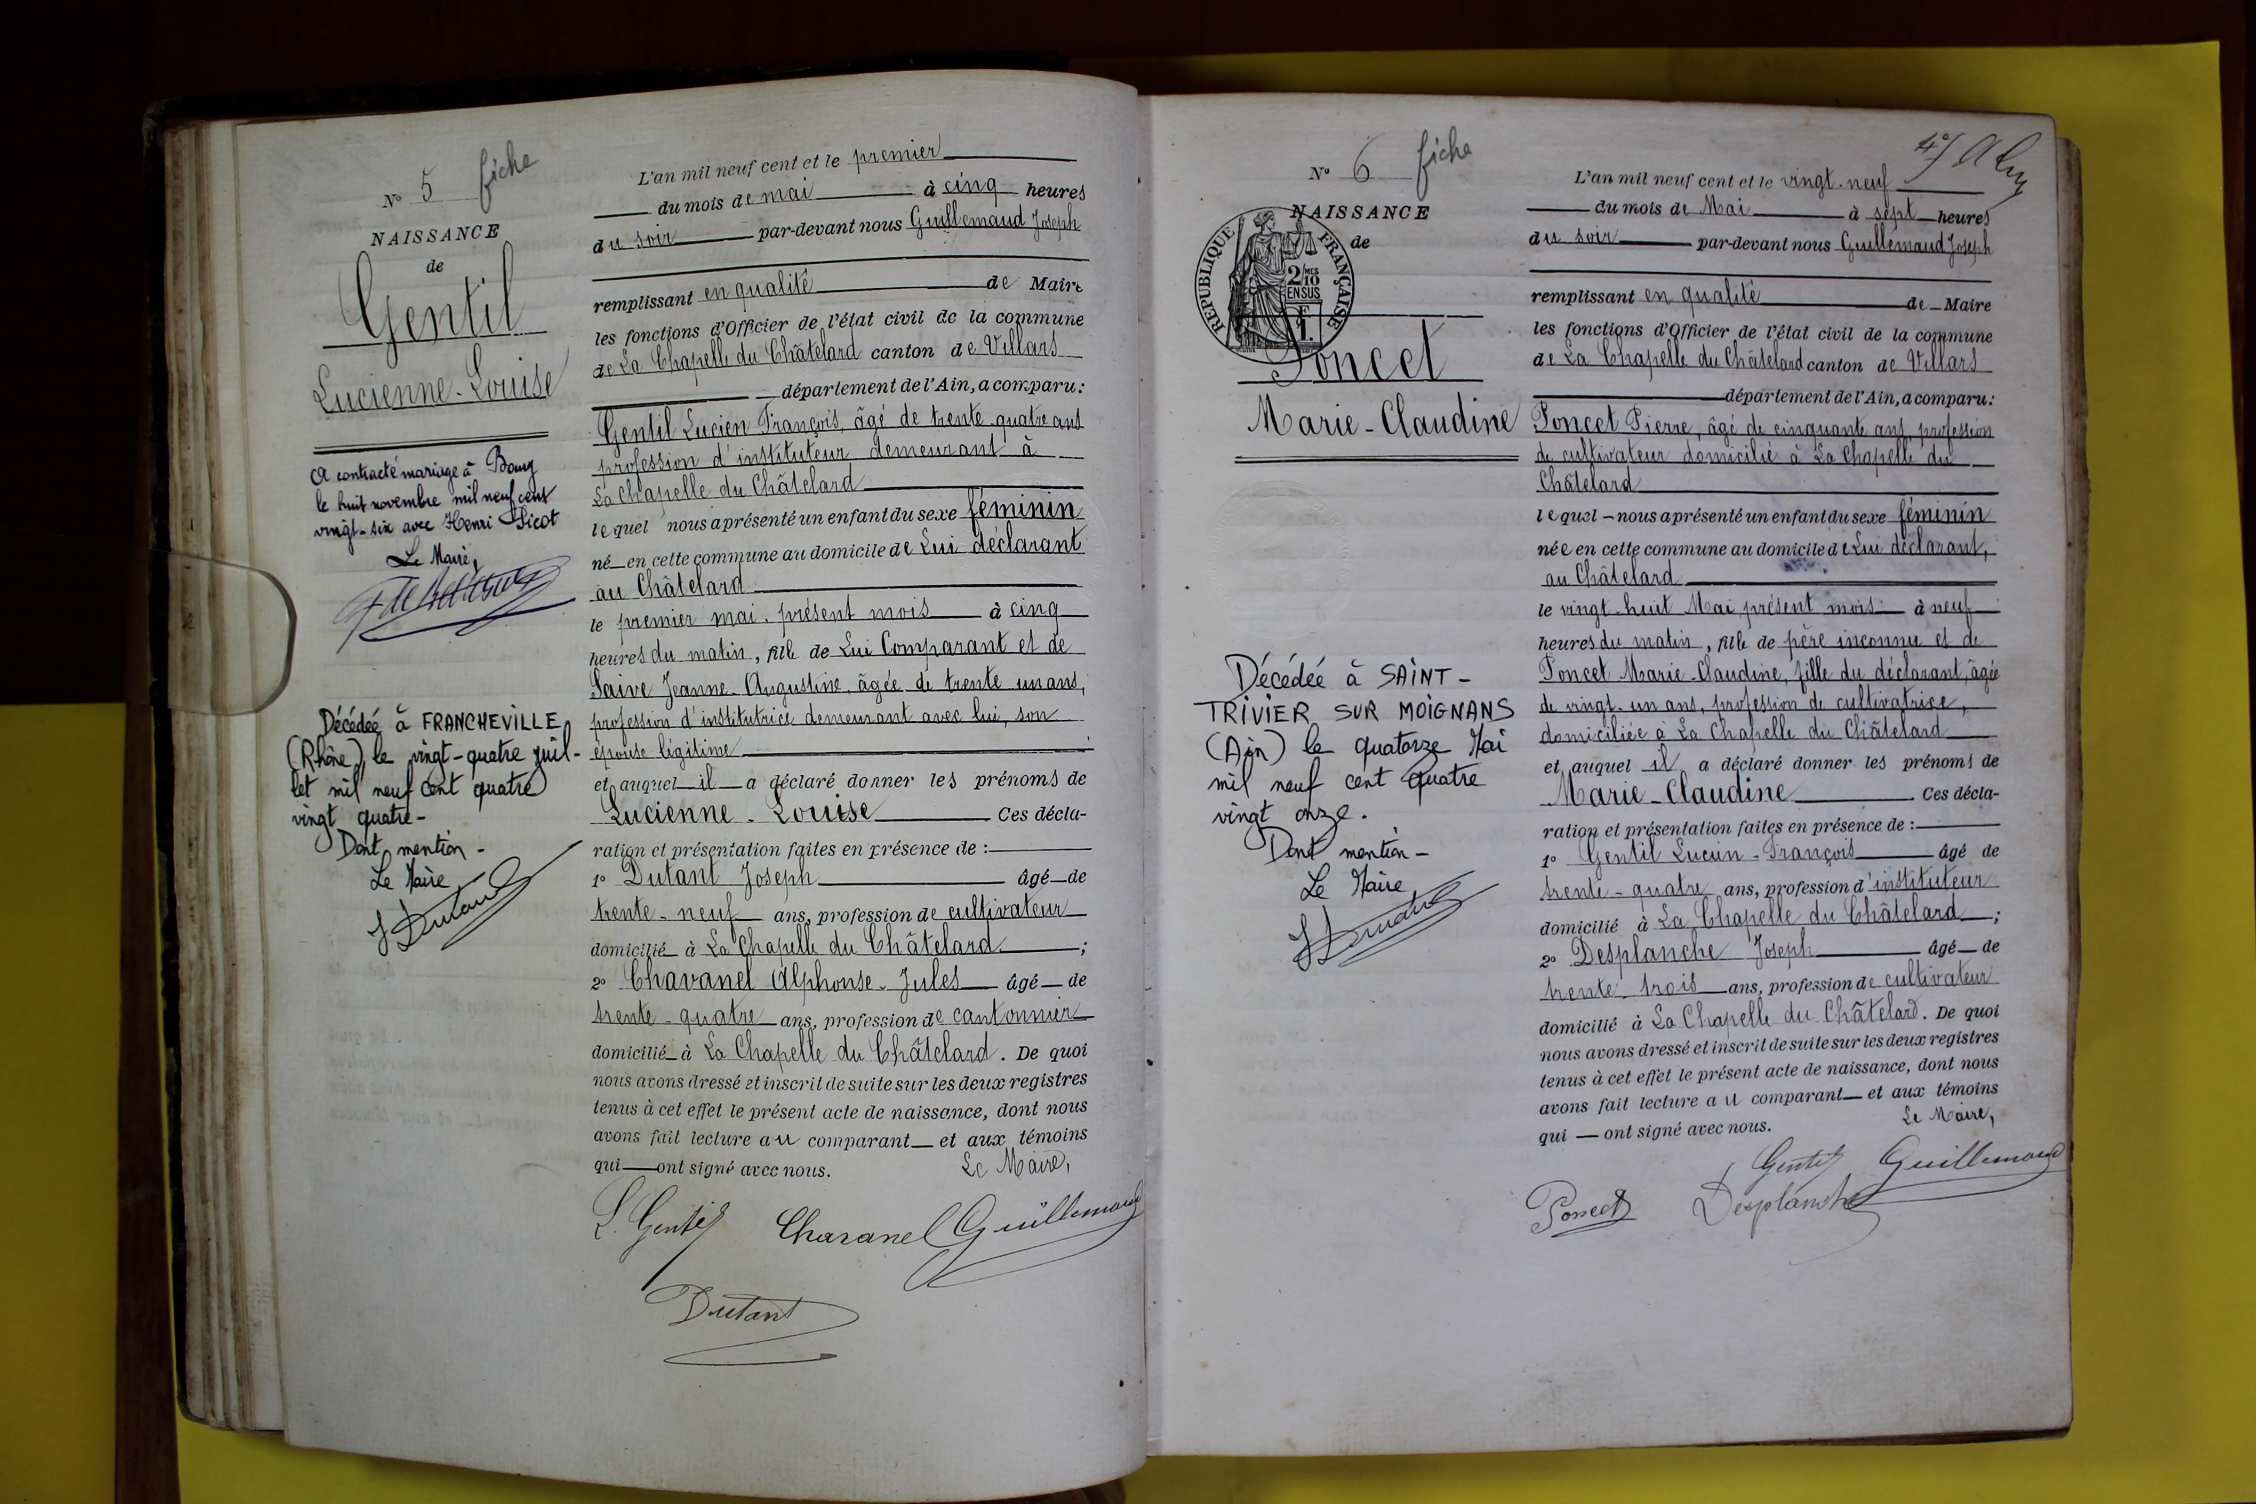 Nº 5 fiche
NAISSANCE
de
Gentil
Lucienne-Louise
A contracté mariage à Bourg
le huit novembre mil neuf cent
vingt-six avec Henri Picot
Le Maire,
Décédée à FRANCHEVILLE
(Rhône), le vingt-quatre juil-
let mil neuf cent quatre
vingt quatre-
Dont mention-
Le Maire
L'an mil neuf cent et le premier
du mois de mai à cinq heures
du soir par-devant nous Guillemaud Joseph
remplissant en qualité de Maire
les fonctions d'Officier de l'état civil de la commune
de La Chapelle du Châtelard canton de Villars
département de l'Ain, a comparu:
Gentil Lucien François, âgé de trente-quatre ans
profession d'instituteur demeurant à
La Chapelle du Châtelard
lequel nous a présenté un enfant du sexe féminin
né en cette commune au domicile de Lui déclarant
au Châtelard
le premier mai, présent mois à cinq
heures du matin, fille de Lui Comparant et de
Saive Jeanne-Augustine, âgée de trente un ans,
profession d'institutrice demeurant avec lui, son
épouse légitime
et auquel il a déclaré donner les prénoms de
Lucienne-Louise Ces décla-
ration et présentation faites en présence de :
1º Dutant Joseph âgé de
trente-neuf ans, profession de cultivateur
domicilié à La Chapelle du Châtelard ;
2º Chavanel Alphonse-Jules âgé de
trente-quatre ans, profession de cantonnier
domicilié à La Chapelle du Châtelard. De quoi
nous avons dressé et inscrit de suite sur les deux registres
tenus à cet effet le présent acte de naissance, dont nous
avons fait lecture au comparant et aux témoins
qui ont signé avec nous. Le Maire,
L. Gentil Chavanel Guillemaud
Dutant
Nº 6 fiche
NAISSANCE
de
REPUBLIQUE FRANÇAISE
2/10 MES
EN SUS
Poncet
Marie-Claudine
Décédée à SAINT-
TRIVIER SUR MOIGNANS
(Ain) le quatorze Mai
mil neuf cent quatre
vingt onze.
Dont mention-
Le Maire
L'an mil neuf cent et le vingt-neuf
du mois de Mai à sept heures
du soir par-devant nous Guillemaud Joseph
remplissant en qualité de Maire
les fonctions d'Officier de l'état civil de la commune
de La Chapelle du Châtelard canton de Villars
département de l'Ain, a comparu:
Poncet Pierre, âgé de cinquante ans, profession
de cultivateur domicilié à La Chapelle du
Châtelard
lequel nous a présenté un enfant du sexe féminin
née en cette commune au domicile de Lui déclarant,
au Châtelard
le vingt-huit Mai, présent mois à neuf
heures du matin, fille de père inconnu et de
Poncet Marie-Claudine, fille du déclarant, âgée
de vingt-un ans, profession de cultivatrice,
domiciliée à La Chapelle du Châtelard
et auquel il a déclaré donner les prénoms de
Marie-Claudine. Ces décla-
ration et présentation faites en présence de :
1º Gentil Lucien-François âgé de
trente-quatre ans, profession d'instituteur
domicilié à La Chapelle du Châtelard ;
2º Desplanche Joseph âgé de
trente-trois ans, profession de cultivateur
domicilié à La Chapelle du Châtelard. De quoi
nous avons dressé et inscrit de suite sur les deux registres
tenus à cet effet le présent acte de naissance, dont nous
avons fait lecture au comparant et aux témoins
qui ont signé avec nous. Le Maire,
Gentil Guillemaud
Poncet Desplanche